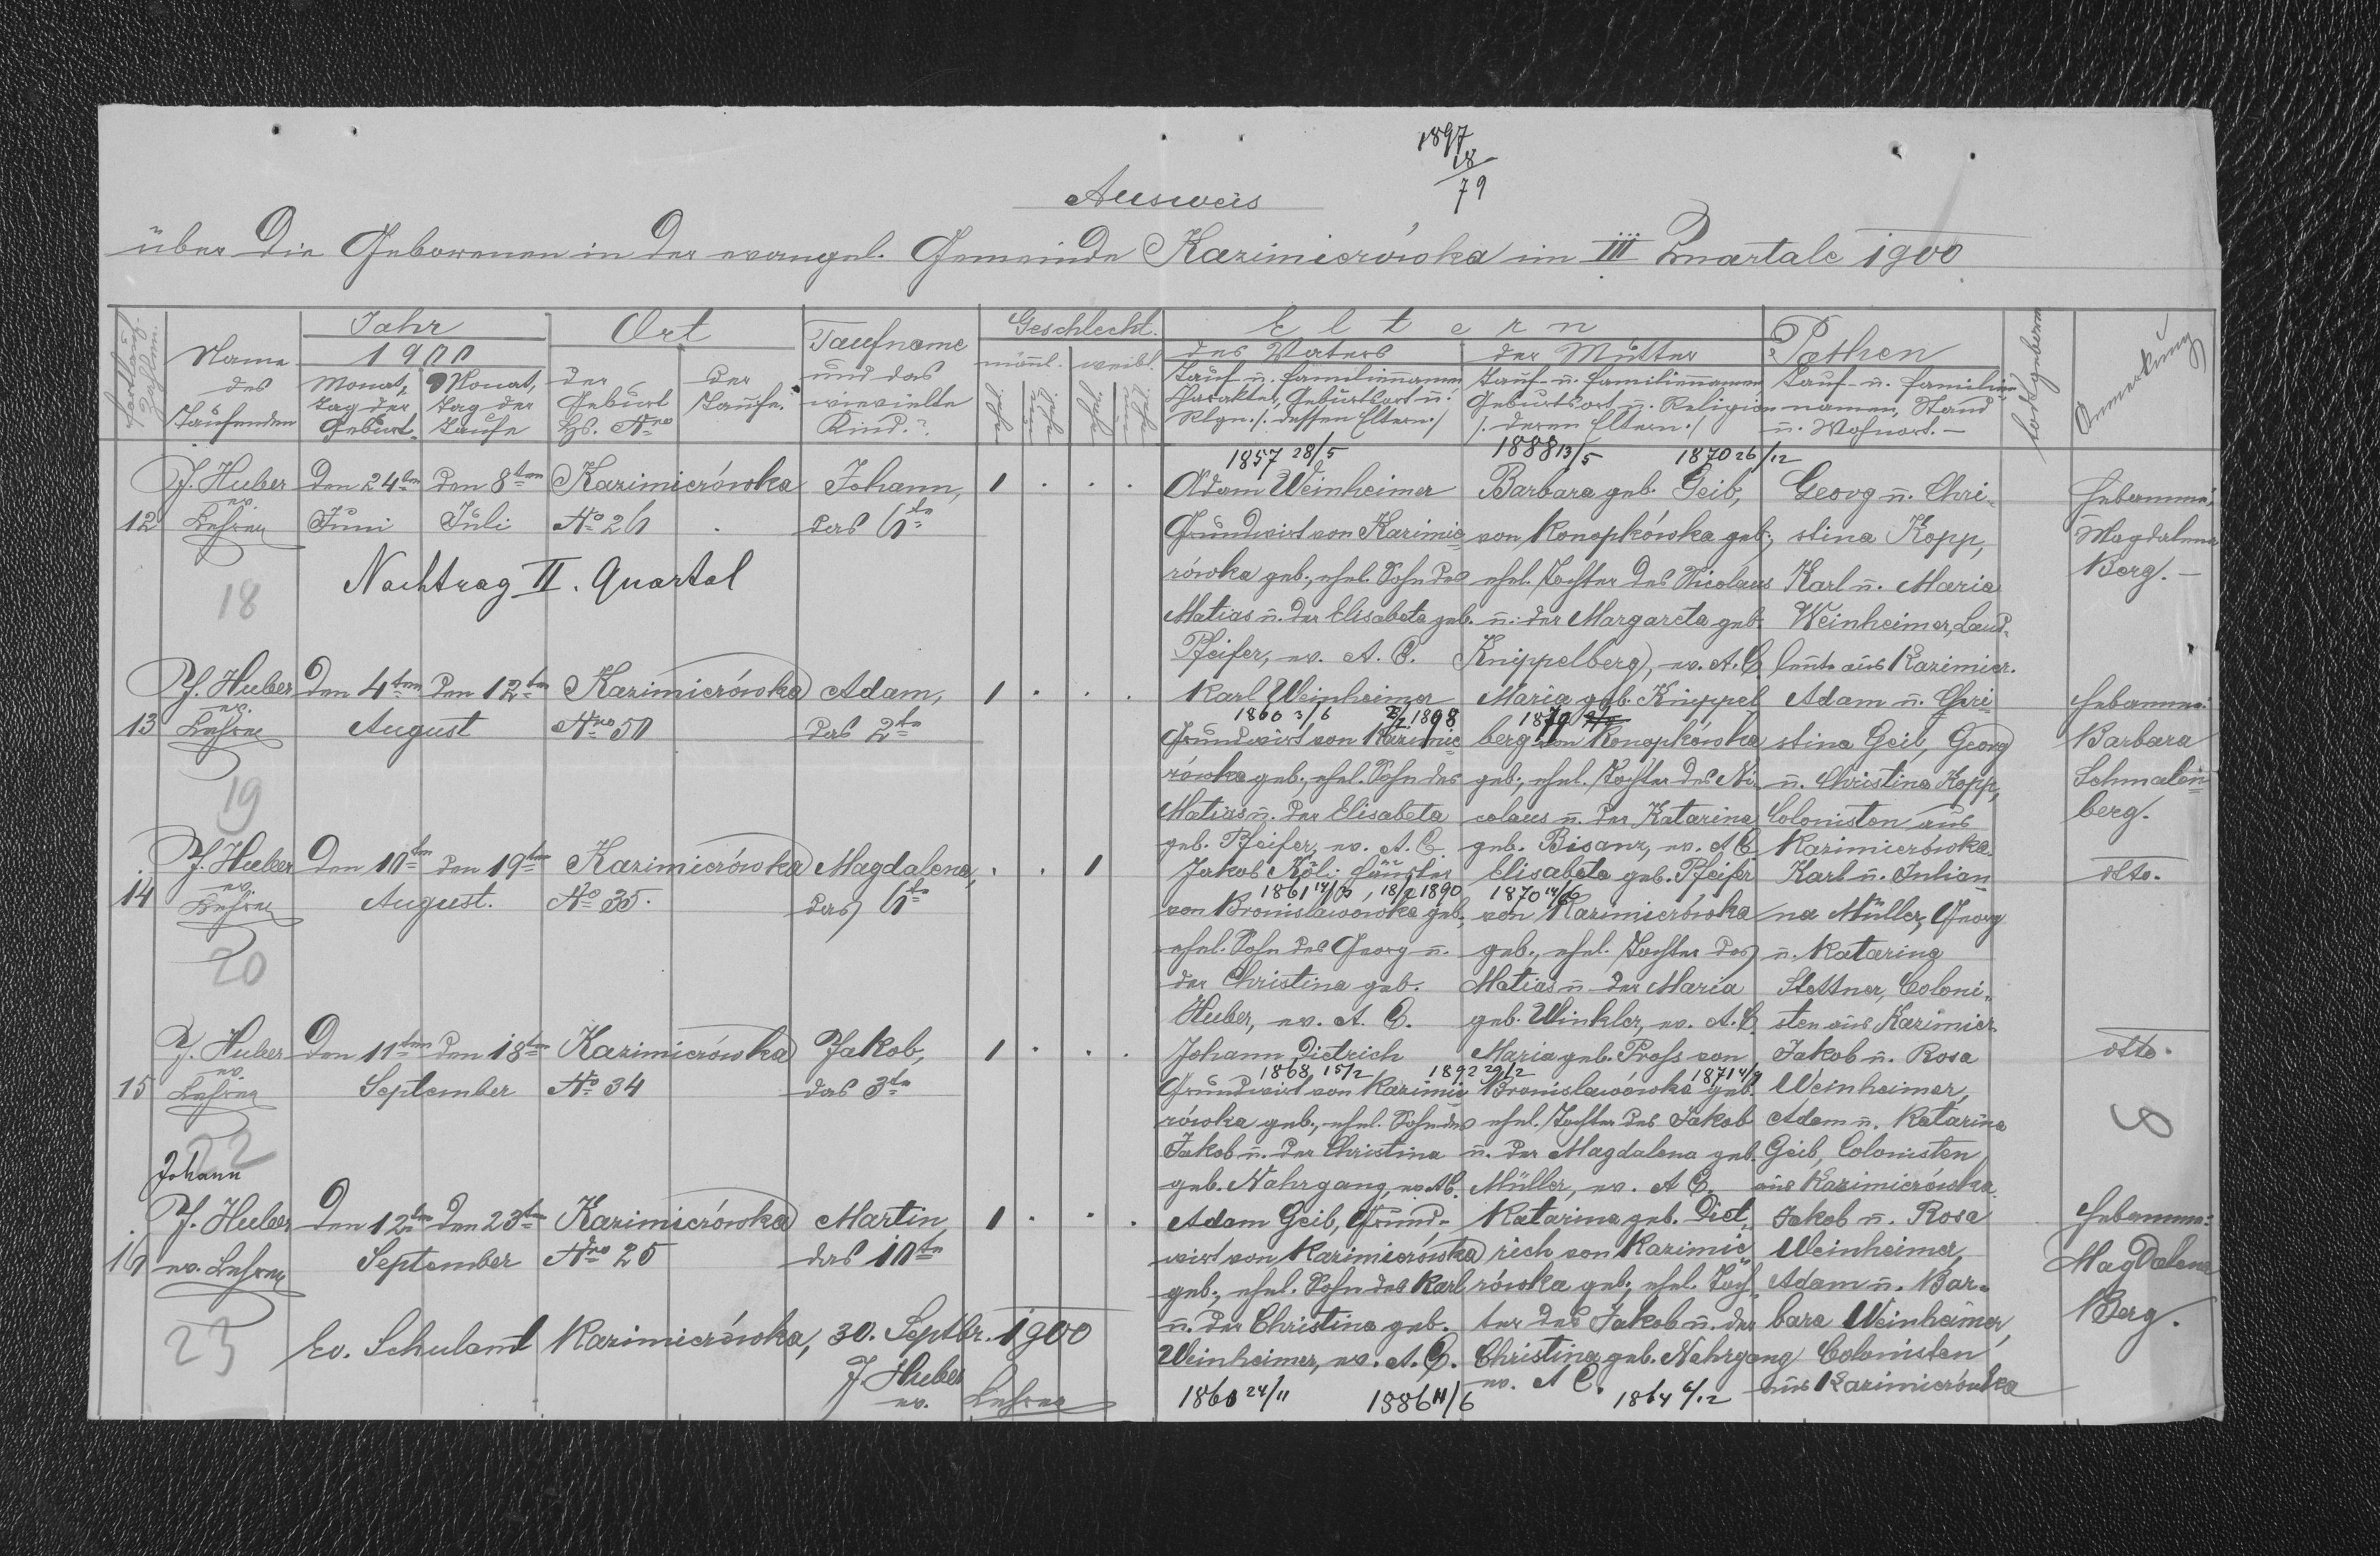 1897
18
79
Ausweis
über die Geborenen in der evangel. Gemeinde Kazimierówka im III Quartale 1900
Name des Taufenden
Jahr 1900
Monat, Tag der Geburt
Monat, Tag der Taufe
Ort
der Geburt Hs. Nro
der Taufe.
Taufname und das wievielte Kind.
Geschlecht.
männl. weibl.
Eltern
des Vaters
Tauf- u. Familiennamen Charakter, Geburtsort u. Relgn. /: dessen Eltern :/
der Mutter
Tauf- u. Familiennamen Geburtsort u. Religion /: deren Eltern :/
Pathen
Tauf- u. Familiennamen, Stand u. Wohnort. —
todtgeboren
Anmerkung
12
J. Huber
ev.
Lehrer
Den 24ten
Juni
den 8ten
Juli
Kazimierówka
No 26
Johann,
das 6te
1
1857 28/5
1888 13/5
1870 26/12
Adam Weinheimer
Grundwirt von Kazimie-
rówka geb., ehel. Sohn des
Matias u. der Elisabeta geb.
Pfeifer, ev. A. C.
Barbara geb. Geib,
von Konopkówka geb.,
ehel. Tochter des Nicolaus
u. der Margareta geb.
Knippelberg, ev. A. C.
Georg u. Chri-
stina Kopp,
Karl u. Maria
Weinheimer, Land-
leute aus Kazimier.
Hebamme:
Magdalena
Berg. —
18
Nachtrag II. Quartal
13
J. Huber
ev.
Lehrer
Den 4ten den 12ten
August
Kazimierówka
Nro 50
Adam,
das 2te
1
Karl Weinheimer
1860 3/6
1898
Grundwirt von Kazimie-
rówka geb., ehel. Sohn des
Matias u. der Elisabeta
geb. Pfeifer, ev. A. C.
Maria geb. Knippel
berg von Konopkówka
geb., ehel. Tochter des Ni-
colaus u. der Katarina
geb. Bisanz, ev. A C.
Adam u. Chri-
stina Geib, Georg
u. Christina Kopp,
Colonisten aus
Kazimierówka.
Hebamme:
Barbara
Schmalen-
berg.
19
14
J. Huber
ev.
Lehrer
Den 10ten den 19ten
August.
Kazimierówka
No 35.
Magdalena,
das 6te
1
Jakob Köli
1890
1870 14/6
von Bronislawówka geb.,
ehel. Sohn des Georg u.
der Christina geb.
Huber, ev. A. C.
Elisabeta geb. Pfeifer
von Kazimierówka
geb., ehel. Tochter des
Matias u. der Maria
geb. Winkler, ev. A. C.
Karl u. Julian-
na Müller, Georg
u. Katarina
Stettner, Coloni-
sten aus Kazimier.
otto.
20
15
J. Huber
ev.
Lehrer
Den 11ten den 18ten
September
Kazimierówka
No 34
Jakob,
das 3te
1
Johann Dietrich
1868 15/2
Grundwirt von Kazimie
rówka geb., ehel. Sohn des
Jakob u. der Christina
geb. Nahrgang, ev. AC.
Maria geb. Pross von
1892 29/2
Bronislawówka geb.
ehel. Tochter des Jakob
u. der Magdalena geb.
Müller, ev. A C.
Jakob u. Rosa
Weinheimer,
Adam u. Katarina
Geib, Colonisten
aus Kazimierówka.
otto.
8
22
Johann
16
J. Huber
ev. Lehrer
Den 12ten den 23ten
September
Kazimierówka
Nro 25
Martin,
das 10te
1
Adam Geib, Grund-
wirt von Kazimierówka
geb., ehel. Sohn des Karl
u. der Christina geb.
Weinheimer, ev. A. C.
Katarina geb. Diet-
rich von Kazimie-
rówka geb., ehel. Toch-
ter des Jakob u. der
Christina geb. Nahrgang
ev. A C.
Jakob u. Rosa
Weinheimer,
Adam u. Bar-
bara Weinheimer,
Colonisten
aus Kazimierówka
Hebamme:
Magdalena
Berg.
23
1860 24/11
1886 11/6
1864 6/12
Ev. Schulamt Kazimierówka, 30. Septbr. 1900
J. Huber
ev. Lehrer